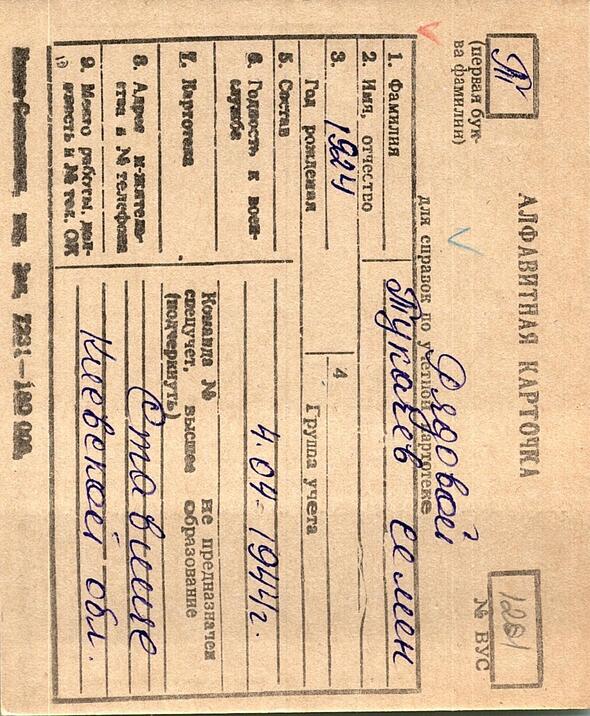 Т
(первая бук-
ва фамилии)
АЛФАВИТНАЯ КАРТОЧКА
для справок по учетной картотеке
1201
№ ВУС
Рядовой
1. Фамилия
2. Имя, отчество
Тукачев Семен
3.
Год рождения
1924
4
Группа учета
5. Состав
6. Годность к воен-
службе
4.04-1944г.
7. Картотека
Команда №
спецучет, высшее
(подчеркнуть)
не предназначен
образование
8. Адрес
и № телефона
Ставище
9. Место работы, дол-
жность и № тел. ОК
Киевской обл.